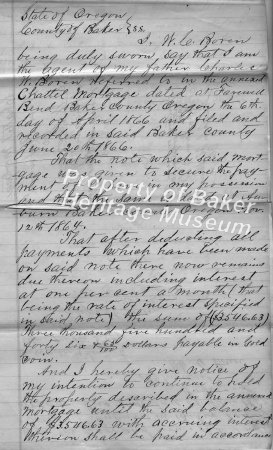 State of Oregon
County of Baker } SS.
I, W. C. Koren
being duly sworn, say that I am
the Agent of my father Charles
Koren referred to in the annexed
Chattel Mortgage dated at Farewell
Bend Baker County Oregon the 6th
day of April 1866 and filed and
recorded in said Baker County
June 20th 1866.
That the note which said mort-
gage was given to secure the pay-
ment of in my possession
and the same Au-
burn Baker Oregon Nov
12th 1864.
That after deducting all
payments which have been made
on said note there now remains
due thereon including interest
at one per cent a month (that
being the rate of interest specified
in said note) the sum of ($3546.63)
three thousand five hundred and
forty six & 63/100 dollars payable in Gold
Coin.
And I hereby give notice of
my intention to continue to hold
the property described in the annexed
mortgage until the said balance
of $3546.63 with accruing interest
thereon shall be paid in accordance
Property of Baker
Heritage Museum